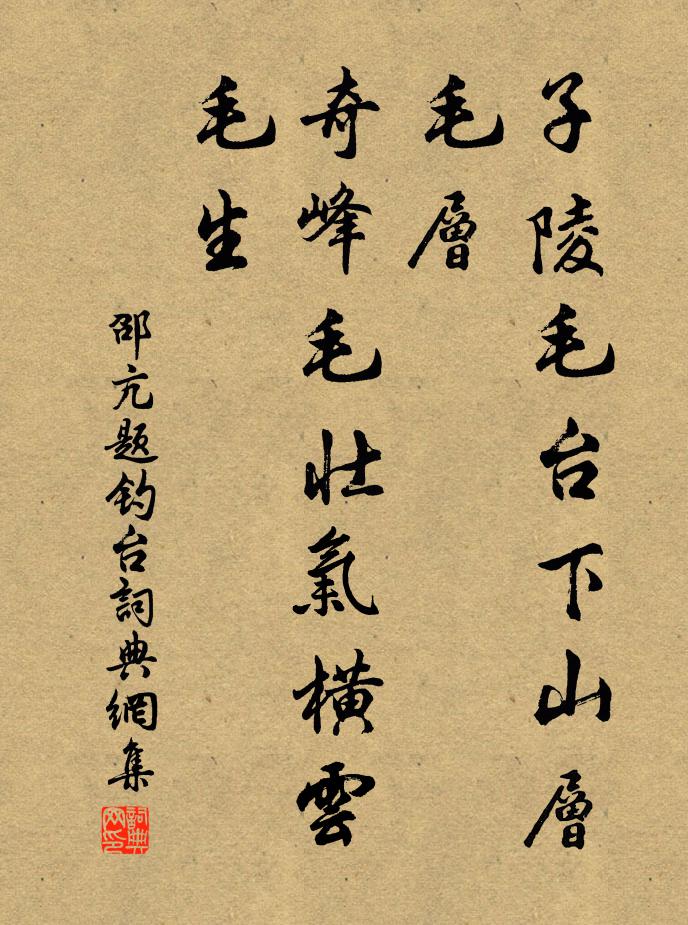 子陵毛台下山層
毛層
奇峰毛壯氣橫雲
毛生
邵亢題釣台詞典網集
詞典网印